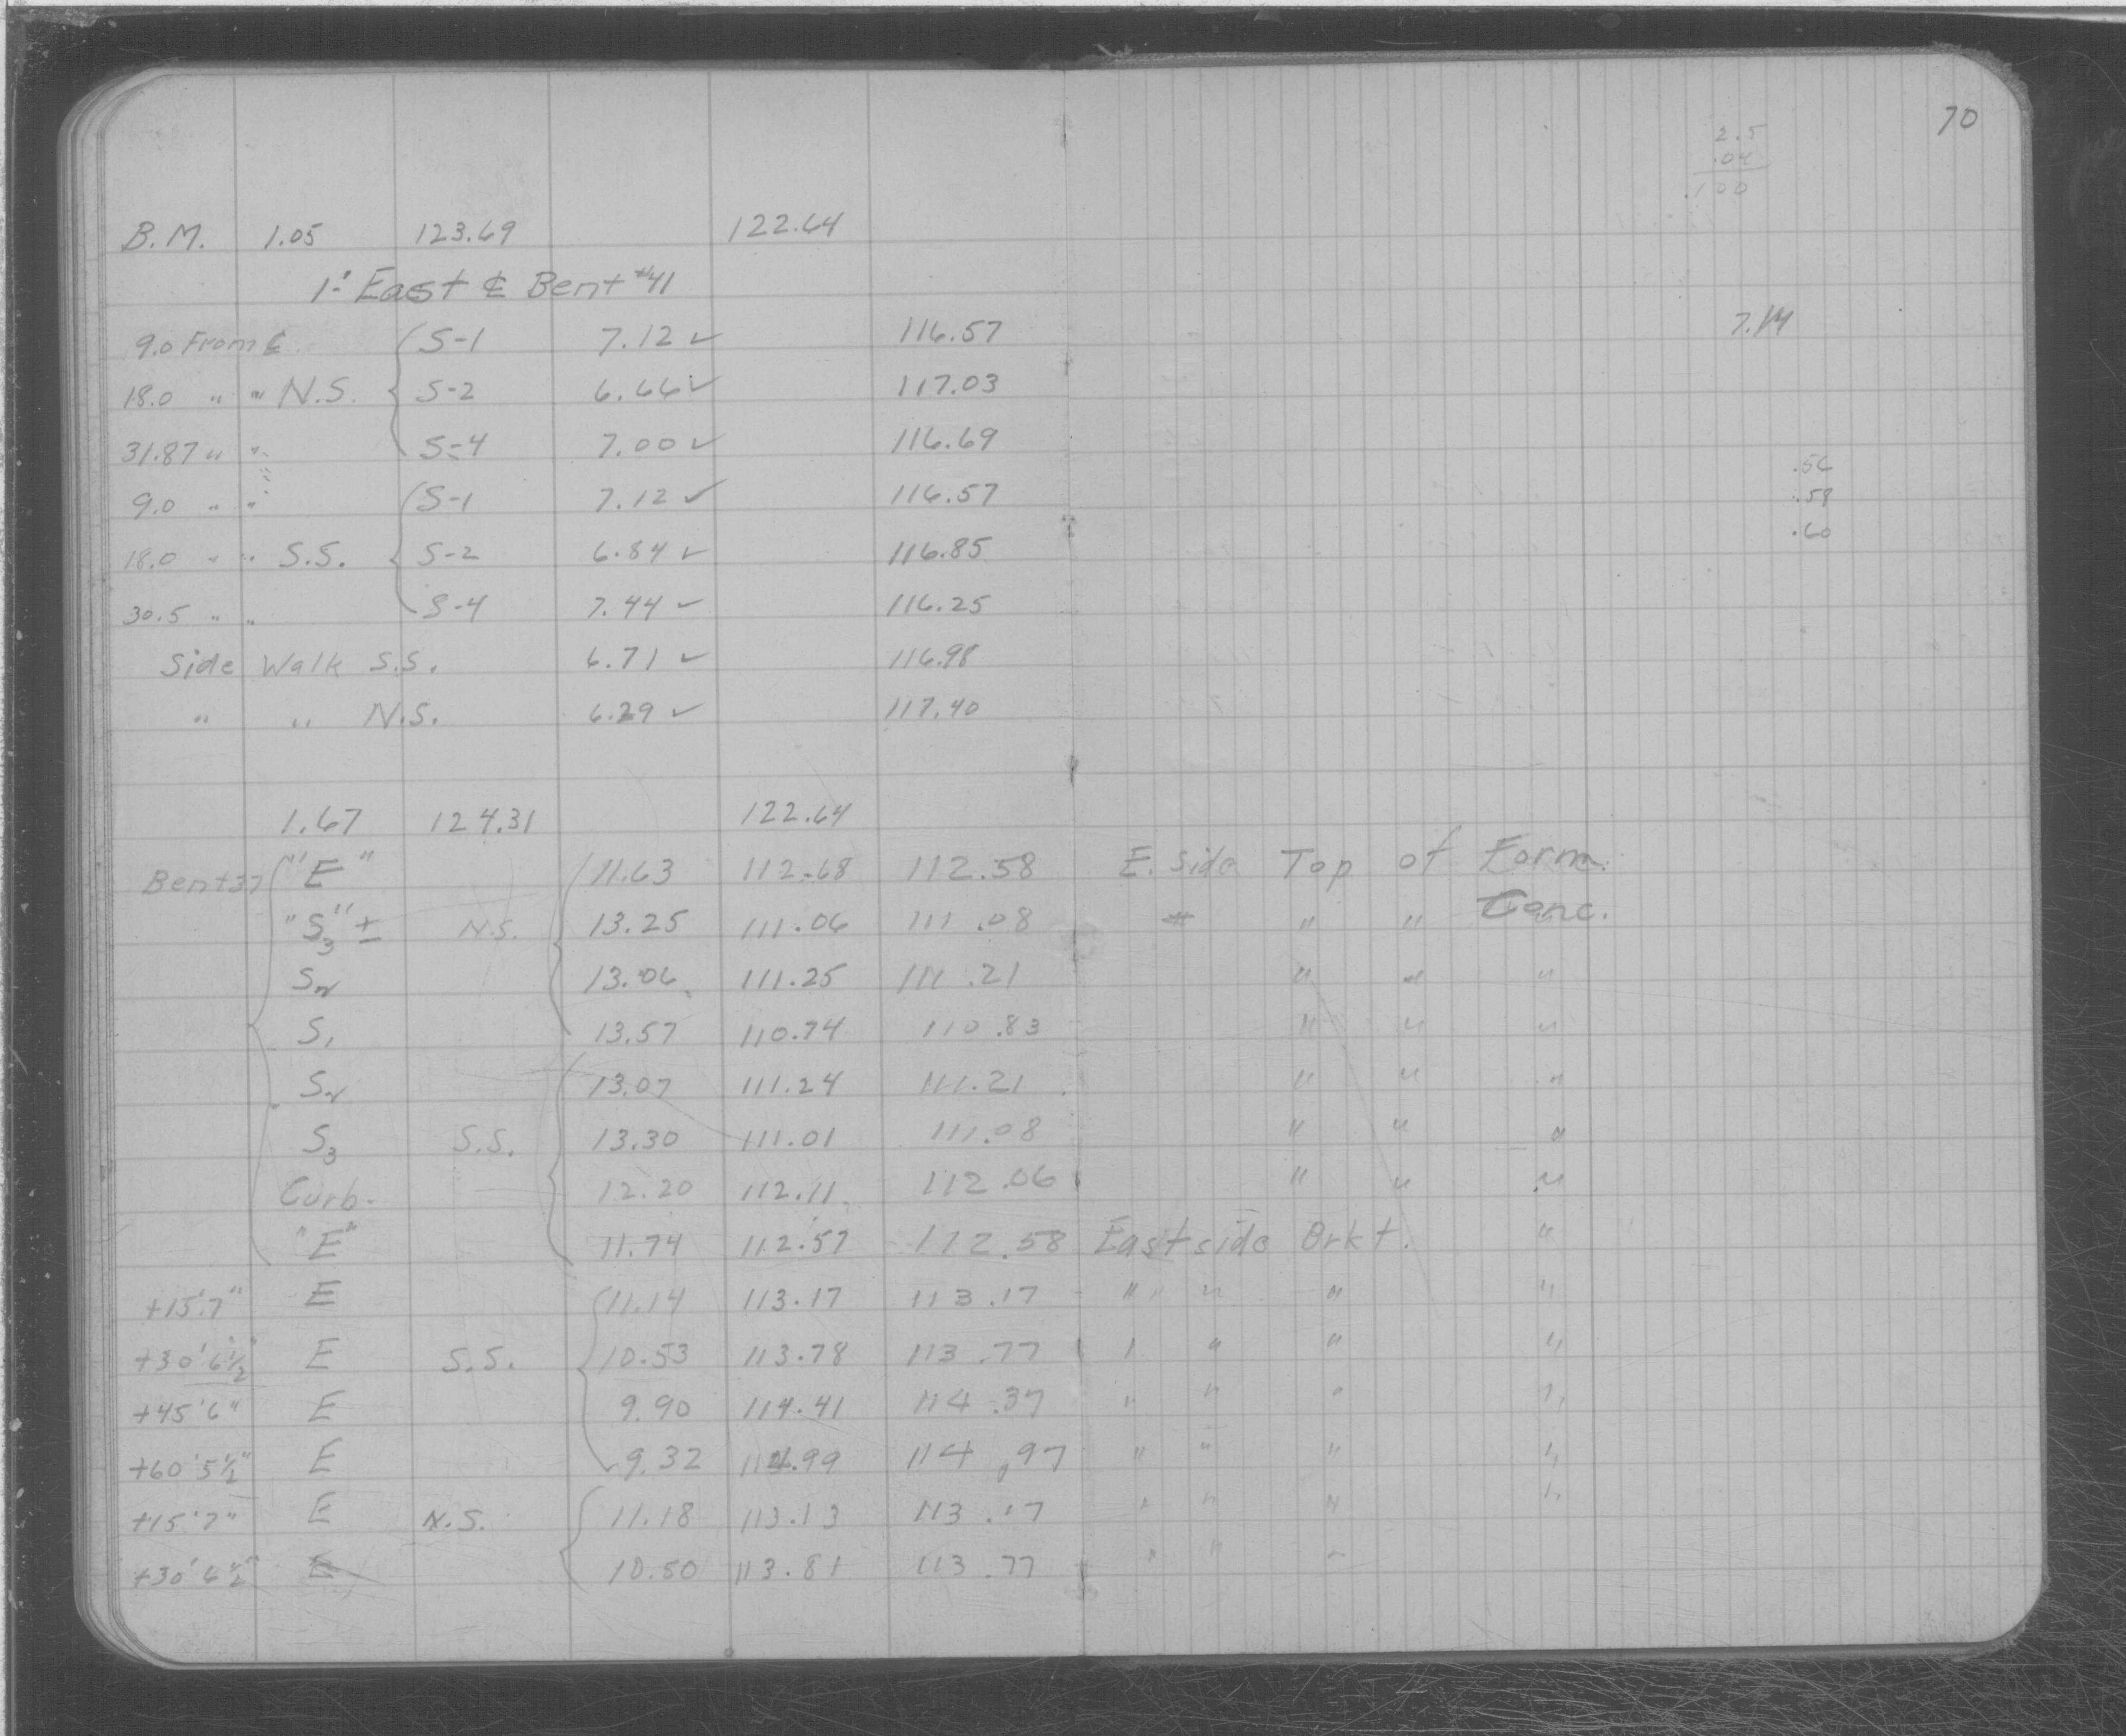 70
2.5
.04
.100
B.M. 1.05 123.69 122.64
1' East ℄ Bent #41
9.0 From ℄ S-1 7.12 ✓ 116.57 7.14
18.0 " " N.S. S-2 6.66 ✓ 117.03
31.87 " " S-4 7.00 ✓ 116.69
.56
9.0 " " S-1 7.12 ✓ 116.57
.59
.60
18.0 " " S.S. S-2 6.84 ✓ 116.85
30.5 " " S-4 7.44 ✓ 116.25
Side Walk S.S. 6.71 ✓ 116.98
" " N.S. 6.29 ✓ 117.40
1.67 124.31 122.64
Bent 37 "E" 11.63 112.68 112.58 E. Side Top of Form.
"S3" ± N.S. 13.25 111.06 111.08 " " Conc.
S2 13.06 111.25 111.21 " " "
S1 13.57 110.74 110.83 " " "
S2 13.07 111.24 111.21 " " "
S3 S.S. 13.30 111.01 111.08 " " "
Curb. 12.20 112.11 112.06 " " "
"E" 11.74 112.57 112.58 East side Brkt. "
+15'7" E 11.14 113.17 113.17 " " " "
+30'6½" E S.S. 10.53 113.78 113.77 " " " "
+45'6" E 9.90 114.41 114.37 " " " "
+60'5½" E 9.32 114.99 114.97 " " " "
+15'7" E N.S. 11.18 113.13 113.17 " " " "
+30'6½" E 10.50 113.81 113.77 " " "